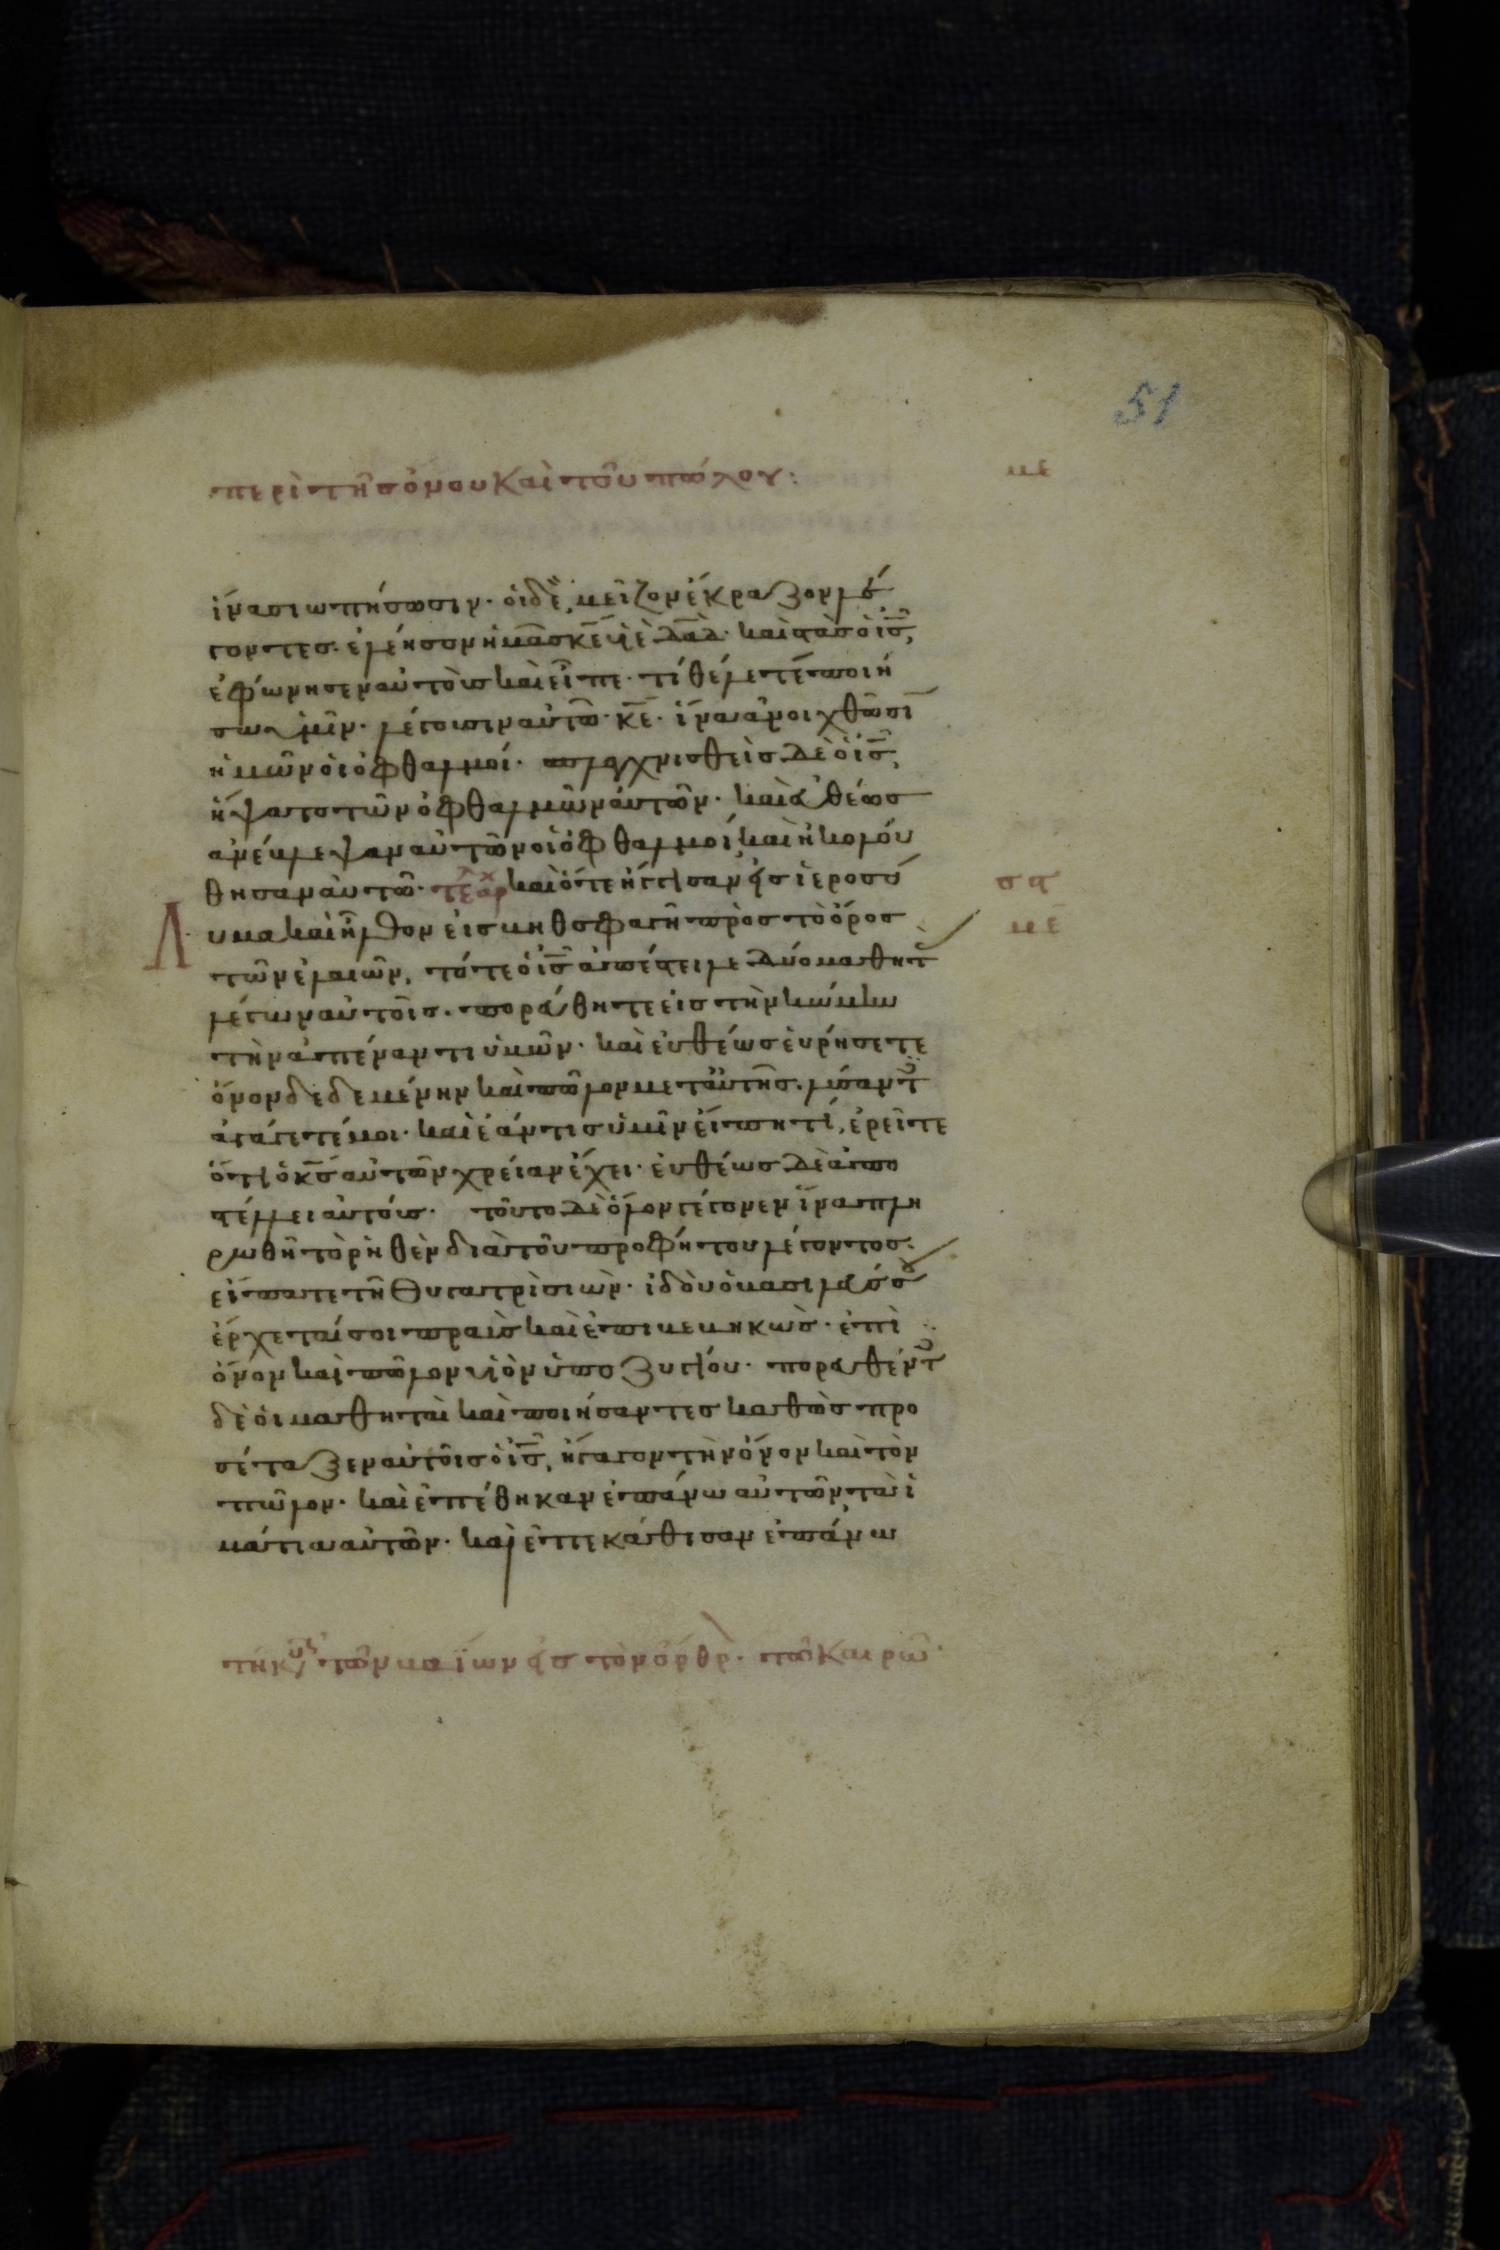 51
περὶ τῆς ὄνου καὶ τοῦ πώλου: με
ἵνα σιωπήσωσιν· οἱ δὲ μεῖζον ἔκραζον λέ
γοντες· ἐλέησον ἡμᾶς κ̅ε̅ υἱὲ δα̅δ̅· καὶ στὰς ὁ ι̅ς̅,
ἐφώνησεν αὐτοὺς καὶ εἶπε· τί θέλετέ ποιή
σω ὑμῖν· λέγουσιν αὐτῶ· κ̅ε̅· ἵνα ἀνοιχθῶσῖ
ἡμῶν οἱ ὀφθαλμοί· σπλαχνισθεὶς δὲ ὁ ι̅ς̅,
ἥψατο τῶν ὀφθαλμῶν αὐτῶν· καὶ εὐθέως
ἀνέβλεψαν αὐτῶν οἱ ὀφθαλμοί, καὶ ἠκολού
θησαν αὐτῶ· καὶ ὅτε ἤγγισαν εἰς ἱεροσό σα
λυμα καὶ ἦλθον εἰς βηθσφαγῆ πρὸς τὸ ὄρος με
τῶν ἐλαιῶν, τότε ὁ ι̅ς̅ ἀπέστειλε δύο μαθητ
λέγων αὐτοῖς· πορεύθητε εἰς τὴν κώμην
τὴν ἀπέναντι ὑμῶν· καὶ εὐθέως εὑρήσετε
ὄνον δεδεμένην καὶ πῶλον μετ' αὐτῆς· λύσαντ
ἀγάγετέ μοι· καὶ ἐάν τις ὑμῖν εἴπη τί, ἐρεῖτε
ὅτι ὁ κ̅ς̅ αὐτῶν χρείαν ἔχει· εὐθέως δὲ ἀπο
στέλλει αὐτούς· τοῦτο δὲ ὅλον γέγονεν ἵνα πλη
ρωθῆ τὸ ρηθὲν διὰ τοῦ προφήτου λέγοντος·
εἴπατε τῆ θυγατρὶ σιών· ἰδοὺ ὁ βασιλεύς σου
ἔρχεταί σοι πραὺς καὶ ἐπιβεβηκὼς· ἐπὶ
ὄνον καὶ πῶλον υἱὸν ὑποζυγίου· πορευθέντ
δὲ οἱ μαθηταὶ καὶ ποιήσαντες καθὼς προ
σέταξεν αὐτοῖς ὁ ι̅ς̅, ἤγαγον τὴν ὄνον καὶ τὸν
πῶλον· καὶ ἐπέθηκαν ἐπάνω αὐτῶν τὰ ἱ
μάτια αὐτῶν· καὶ ἐπεκάθισαν ἐπάνω
τῆ κυ τῶν βαΐων εἰς τὸν ὄρθρ· τῶ καιρῶ·